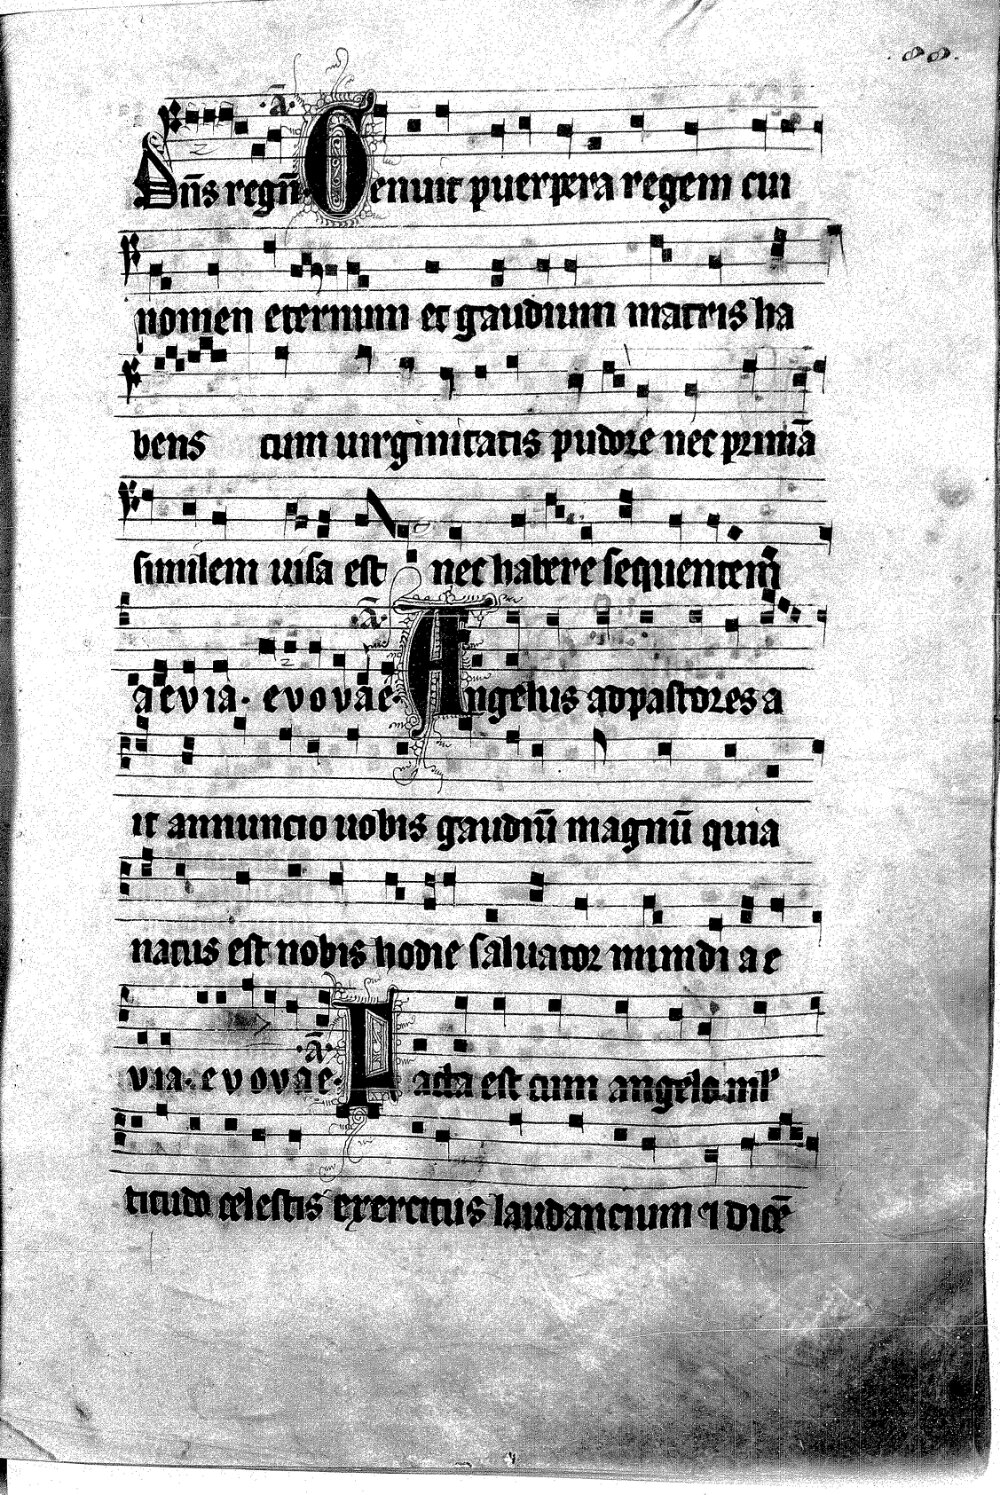 .88.
.ā.
Dn̄s regn̄. Genuit puerpera regem cui
nomen eternum et gaudium matris ha
bens cum uirginitatis pudore nec primā
similem uisa est nec habere sequentem
.ā.
a e v ia. e v o v a e. Angelus ad pastores a
it annuncio uobis gaudiū magnū quia
natus est nobis hodie saluator mundi a e
.ā.
v ia. e v o v a e. Facta est cum angelo ml'
titudo celestis exercitus laudancium ⁊ dicē